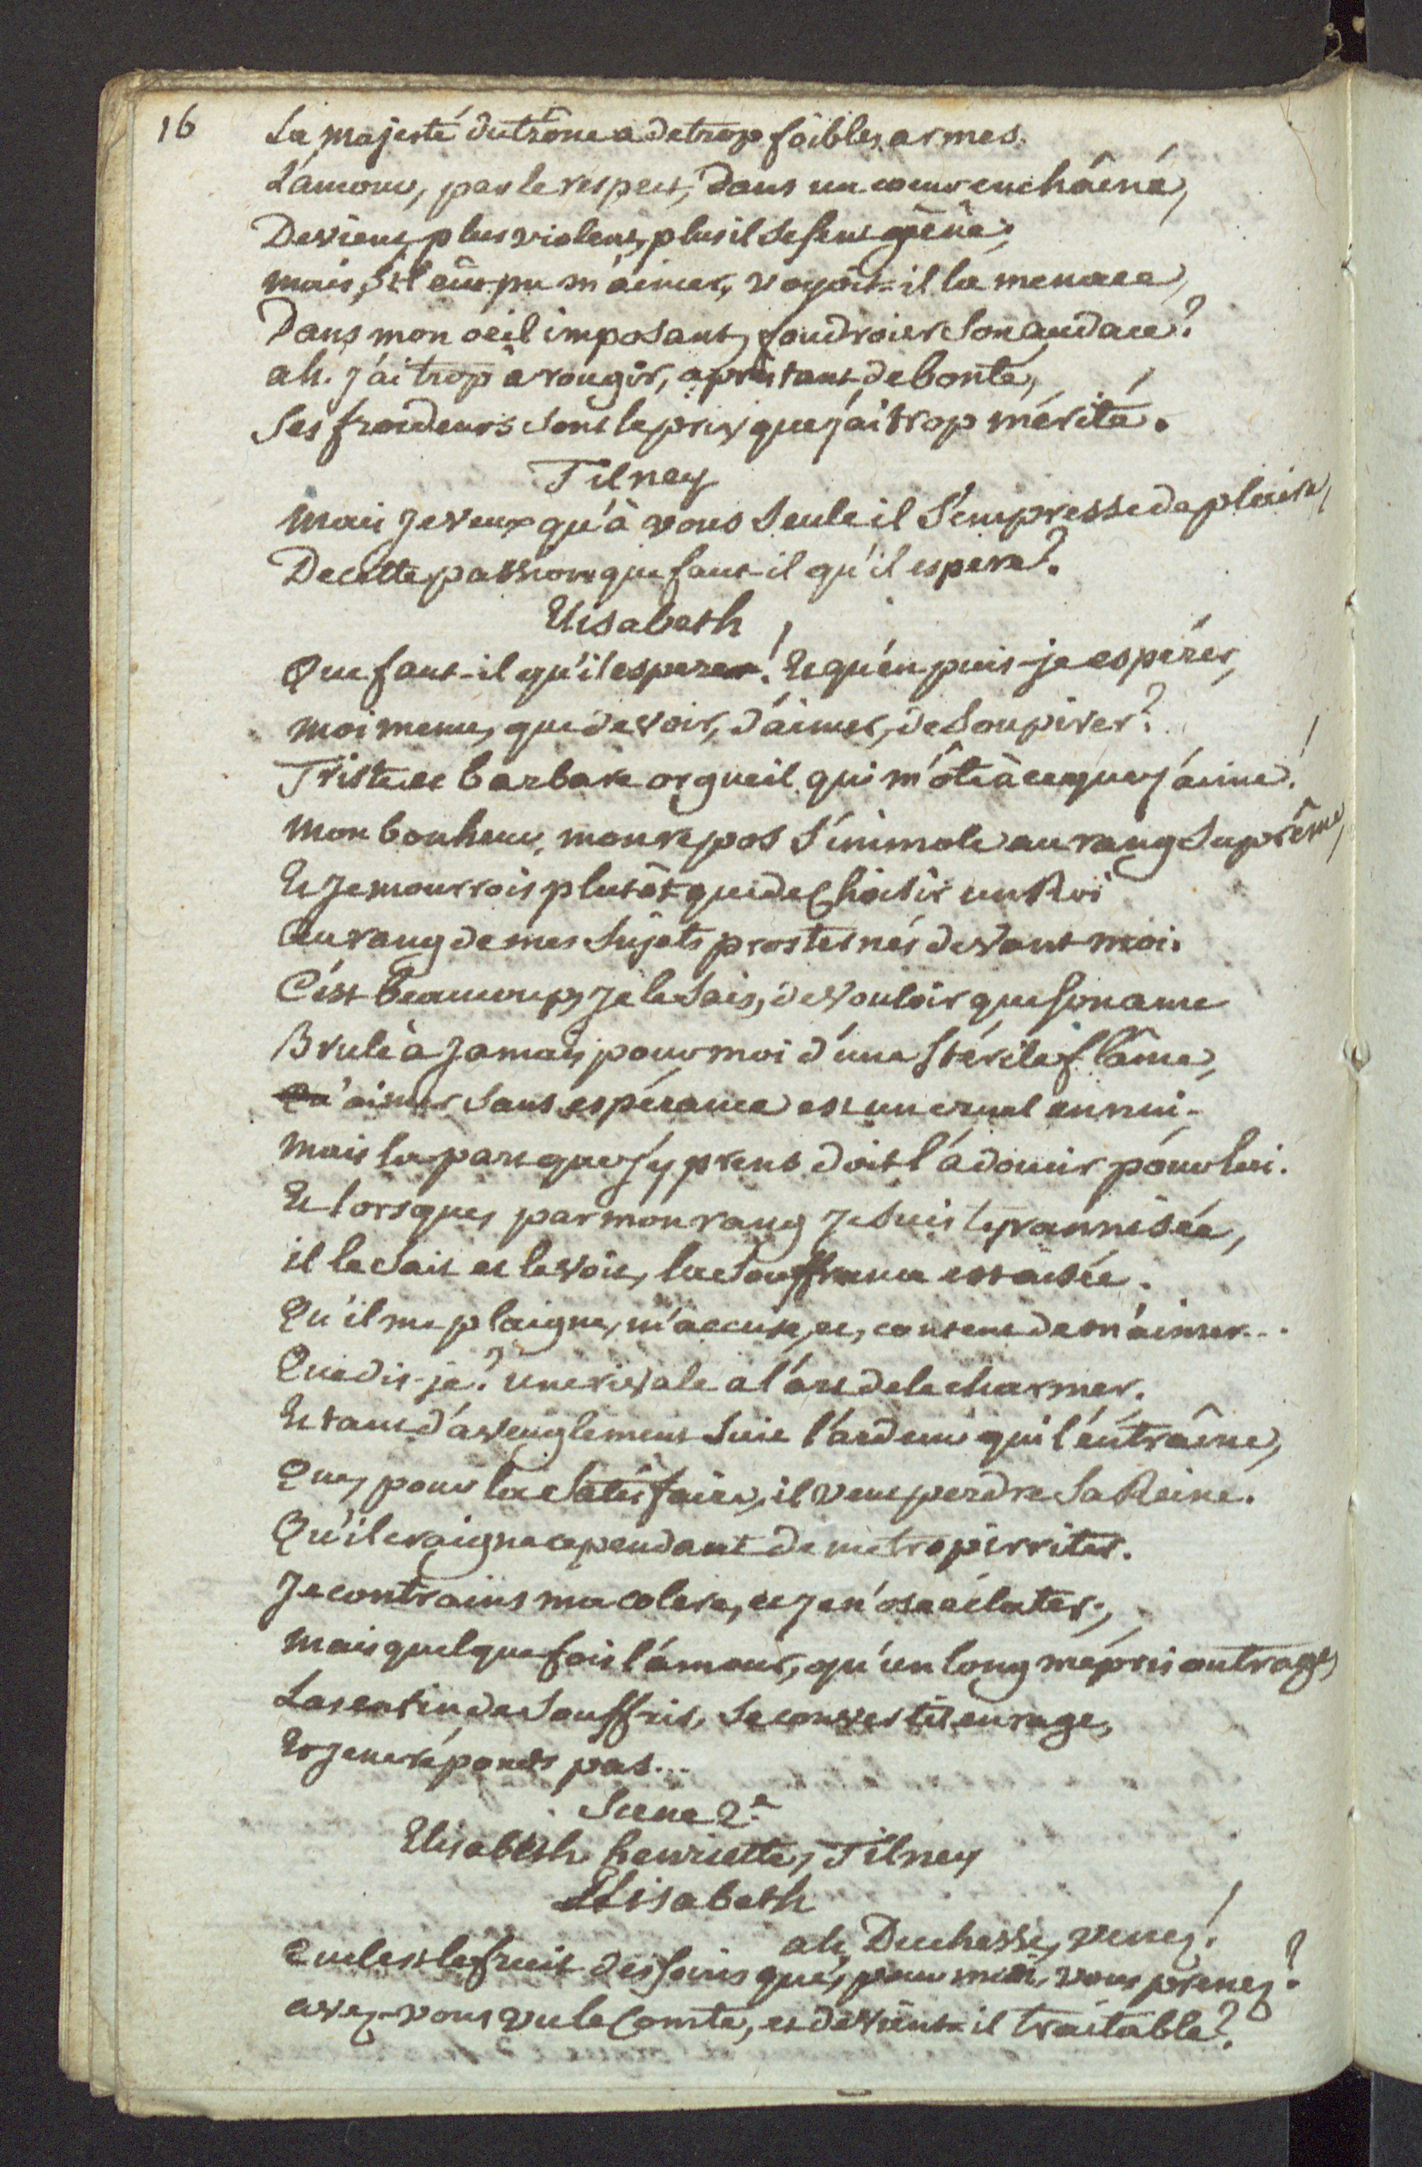 16
La majesté du trône a de trop foibles armes.
L'amour, par le respect, Dans un coeur enchâiné,
Devient plus violent, plus il se sent gêné;
mais, s'il eût pu m'aimer, voyoit-il la menace,
Dans mon oeil imposant, foudroier son audace?
ah. j'ai trop à rougir, après tant de bonté,
Ses froideurs sont le prix que j'ai trop mérité.
Tilney
mais je veux qu'à vous seule il s'empresse de plaire,
De cette passion que faut-il qu'il espere?
Elisabeth
Que faut-il qu'il espere! Et qu'en puis-je espérer,
moi meme, que de voir, d'aimer, de soupirer?
Triste et barbare orgueil qui m'ôte à ce que j'aime!
mon bonheur, mon repos s'immole au rang suprême,
Et je mourrois plutôt que de Choisir un Roi
au rang de mes sujets prosternés devant moi.
C'est beaucoup, je le sais, de vouloir que son ame
Brule à jamais pour moi d'une stérile flâme,
Qu'aimer sans espérance est un cruel ennui;
mais la part que j'y prens doit l'adoucir pour lui.
Et lorsque, par mon rang je suis tyrannisée,
il le sait et le voit, la souffrance est aisée.
Qu'il me plaigne, m'accuse, et, content de m'aimer...
Que dis-je? une rivale a l'art de le charmer.
Et tant d'aveuglement suit l'ardeur qui l'entraîne,
Que, pour la satisfaire, il veut perdre sa Reine.
Qu'il craigne cependant de me trop irriter.
Je contrains ma colere, et je n'ose éclater;
mais quelquefois l'amour, qu'un long mépris outrage,
Las enfin de souffrir, se convertit en rage,
Et je ne réponds pas...
Scene 2.e
Elisabeth, henriette, Tilney
Elisabeth
ah, Duchesse, venez!
Quel est le fruit des soins que, pour moi, vous prenez?
avez-vous vu le Comte, et devient-il traitable?